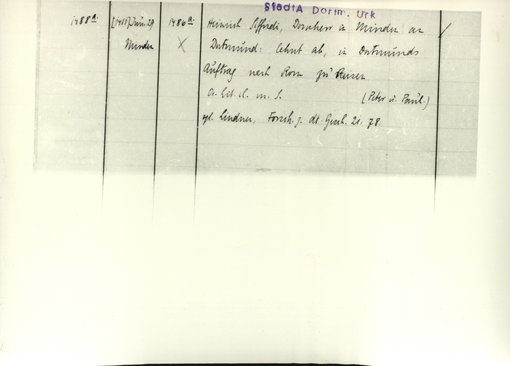 StadtA Dortm. Urk
1488a [1488] Juni 29 1486a Heinrich Siffridi, Domherr in Minden an
Minden X Dortmund: lehnt ab, in Dortmunds
Auftrag nach Rom zu Reisen
a. lit. cl. m. S. (Peter u. Paul.)
vgl. Lindner, Forsch. z. dt. Gesch. 21. 78.